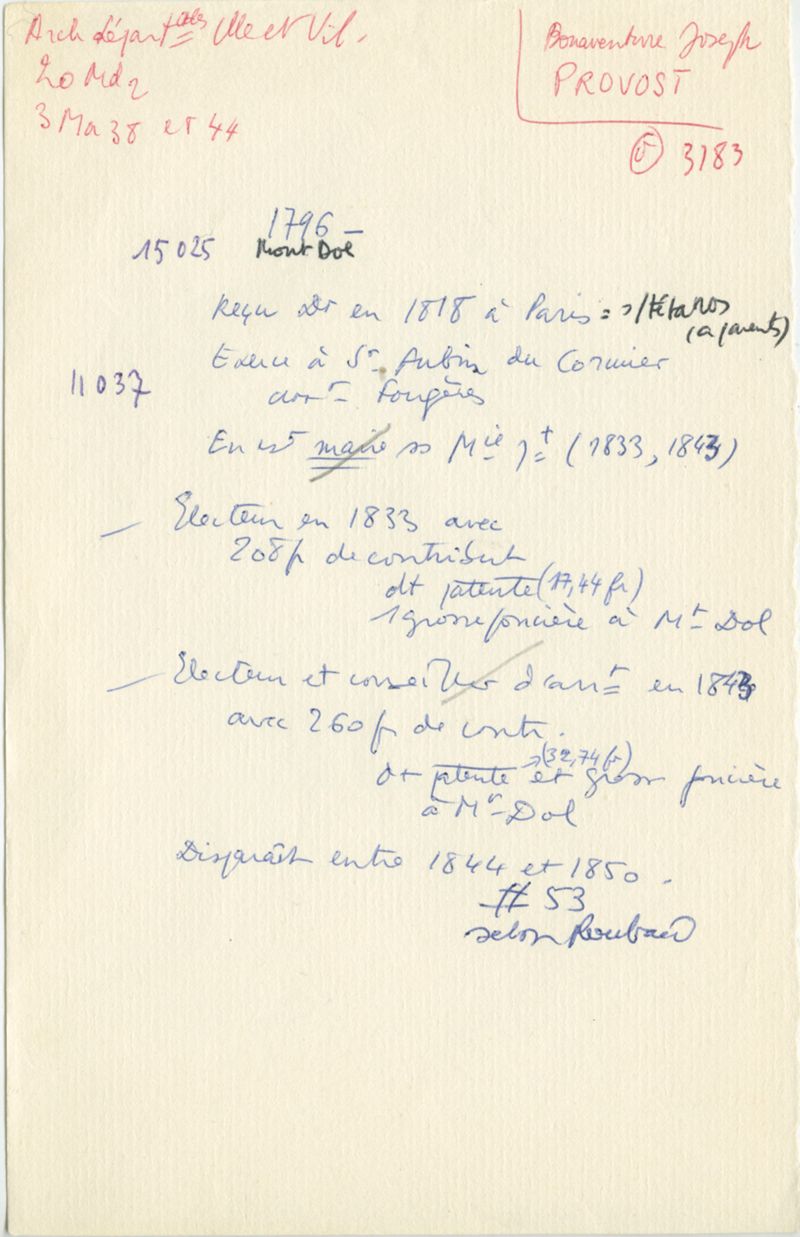 Arch départales Ille et Vil.
20 Md2
3 Ma 38 et 44
Bonaventure Joseph
PROVOST
5 3183
1796 -
15 025 Mont Dol
Reçu Dr en 1818 à Paris = s/tétanos
(a parents)
Exerce à St Aubin du Cormier
11 037
arrt Fougères
En est maire ss Mie Jt (1833, 1843)
Electeur en 1833 avec
208 fr de contribut
dt patente (17,44 fr)
1 grosse foncière à Mt Dol
Electeur et conseiller d'arrt en 1843
avec 260 fr de contr.
(32,74 fr)
dt patente et grosse foncière
à Mt-Dol
Disparaît entre 1844 et 1850.
# 53
selon Roubaud